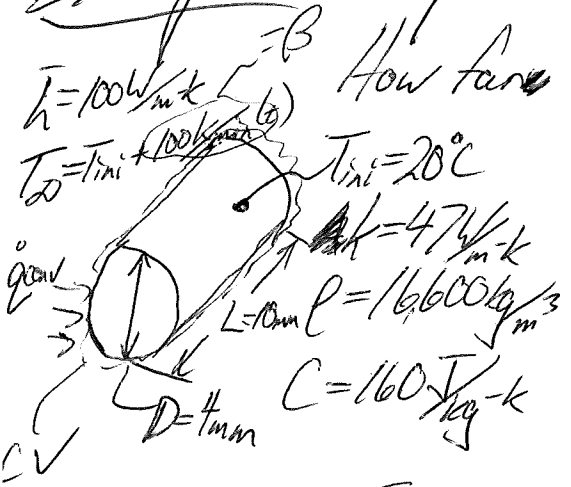 =β
h̅=100W/m-k
How far
T∞=Tini+100k/min(t)
Tini=20°C
k=47W/m-k
q̇conv
L=10mm
ρ=16,600kg/m³
C=160J/kg-k
D=4mm
CV